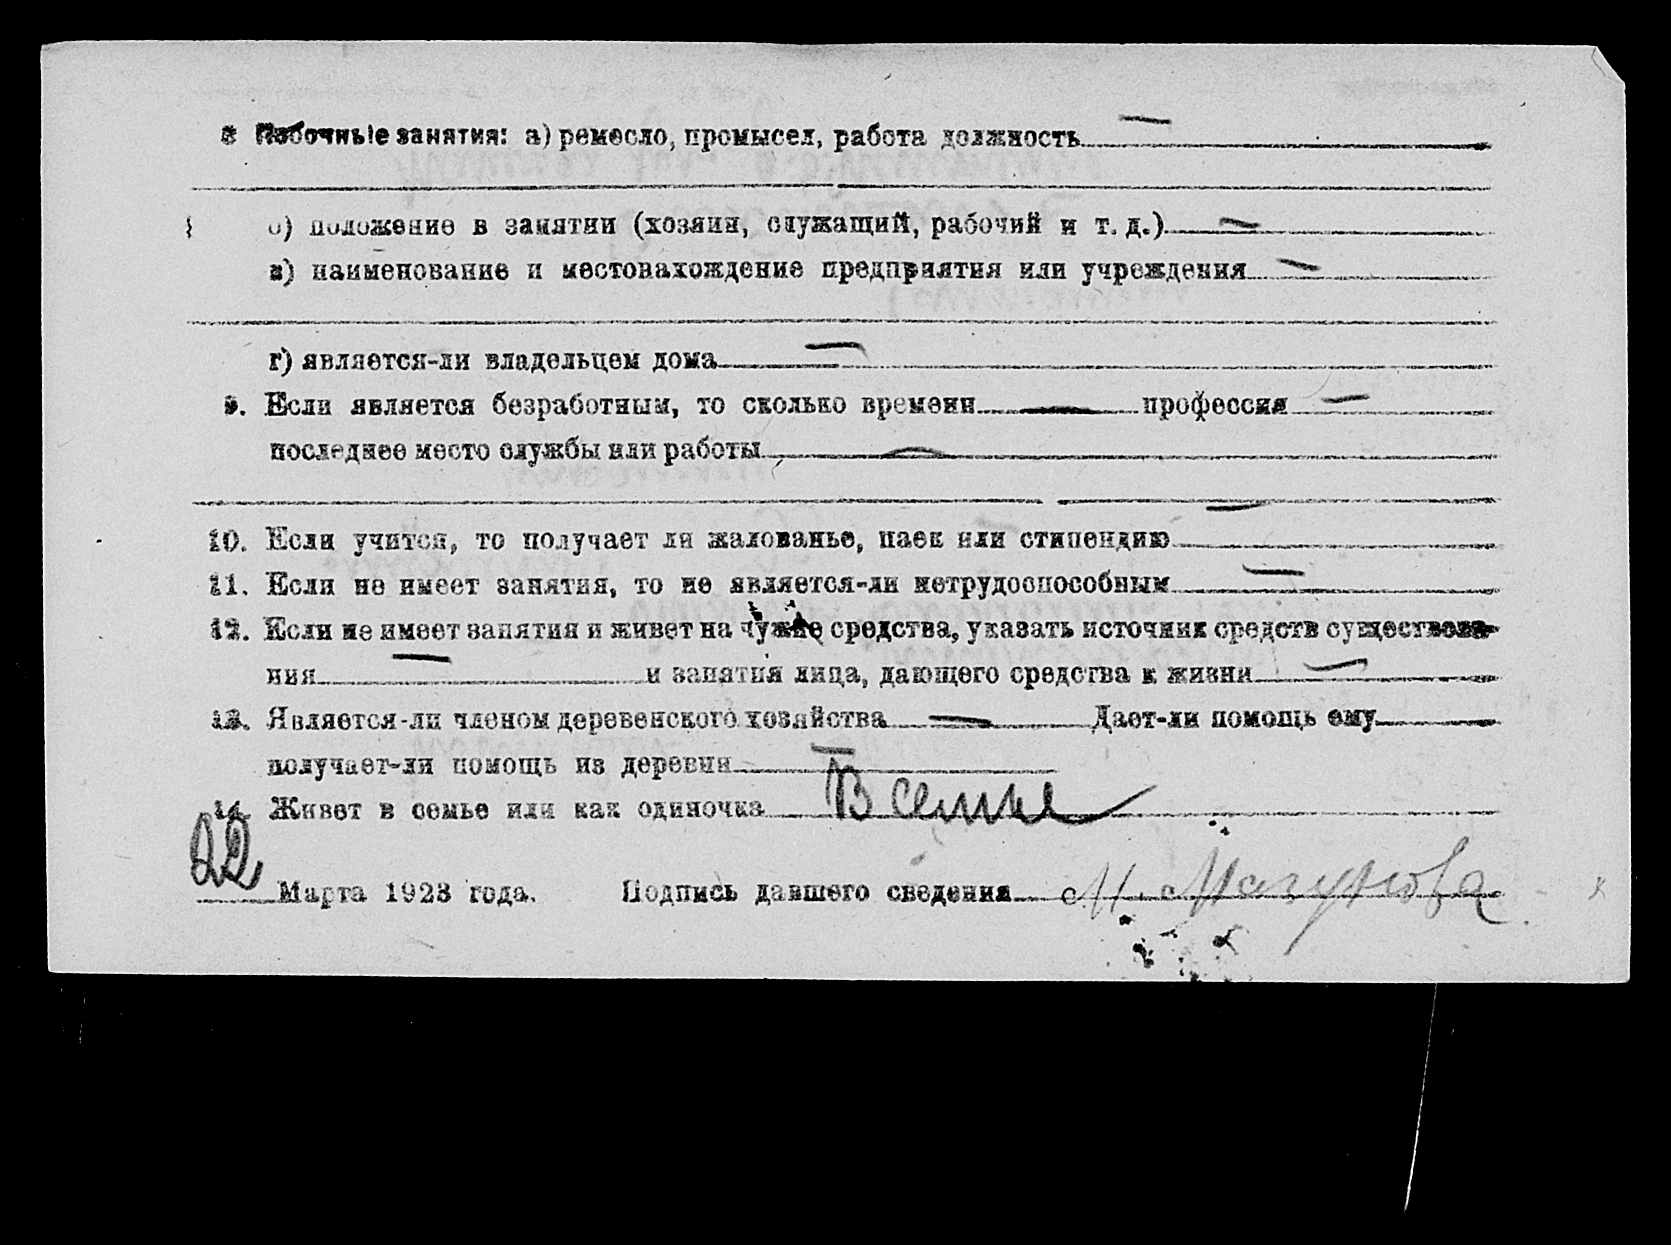 8 Побочные занятия: а) ремесло, промысел, работа должность —
б) положение в занятии (хозяин, служащий, рабочий и т. д.) —
в) наименование и местонахождение предприятия или учреждения —
г) является-ли владельцем дома —
9. Если является безработным, то сколько времени — профессия —
последнее место службы или работы —
—
10. Если учится, то получает ли жалованье, паек или стипендию
11. Если не имеет занятия, то не является-ли нетрудоспособным —
12. Если не имеет занятия и живет на чужие средства, указать источник средств существова-
ния — и занятия лица, дающего средства к жизни —
13. Является-ли членом деревенского хозяйства — Дает-ли помощь ему —
получает-ли помощь из деревни —
14. Живет в семье или как одиночка В семье
22 Марта 1923 года. Подпись давшего сведения М.